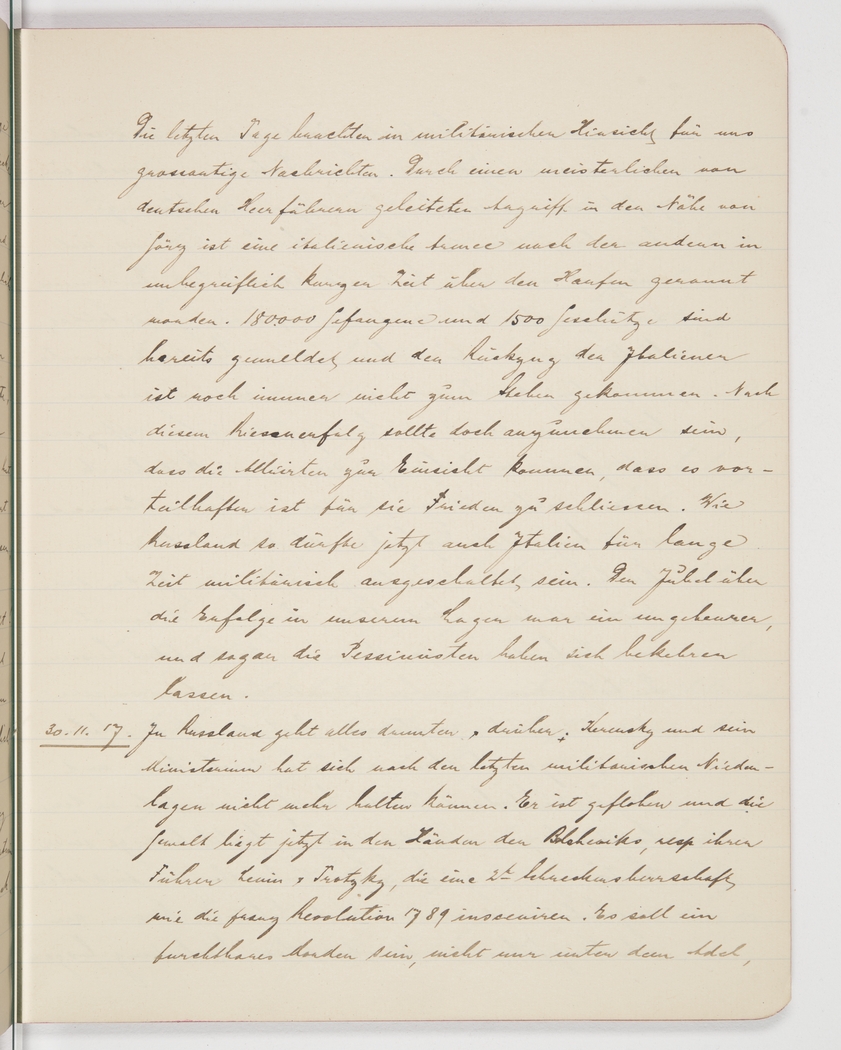 Die letzten Tage brachten in militärischer Hinsicht für uns
grossartige Nachrichten. Durch einen meisterlichen von
deutschen Heerführern geleiteten Angriff in der Nähe von
Görz ist eine italienische Armee nach der andern in
unbegreiflich kurzer Zeit über den Haufen gerannt
worden. 180000 Gefangene und 1500 Geschütze sind
bereits gemeldet und der Rückzug der Italiener
ist noch immer nicht zum Stehen gekommen. Nach
diesem Riesenerfolg sollte doch anzunehmen sein,
dass die Alliirten zur Einsicht kommen, dass es vor-
teilhafter ist für sie Frieden zu schliessen. Wie
Russland so dürfte jetzt auch Italien für lange
Zeit militärisch ausgeschaltet sein. Der Jubel über
die Erfolge in unserem Lager war ein ungeheurer,
und sogar die Pessimisten haben sich bekehren
lassen.
30.11.17. In Russland geht alles drunter & drüber. Kerensky und sein
Ministerium hat sich nach den letzten militärischen Nieder-
lagen nicht mehr halten können. Er ist geflohen und die
Gewalt liegt jetzt in den Händen der Blscheviks, resp ihren
Führern Lenin & Trotzky, die eine 2te Schreckensherrschaft,
wie die franz Revolution 1789 insceniren. Es soll ein
furchtbares Morden sein, nicht nur unter dem Adel,